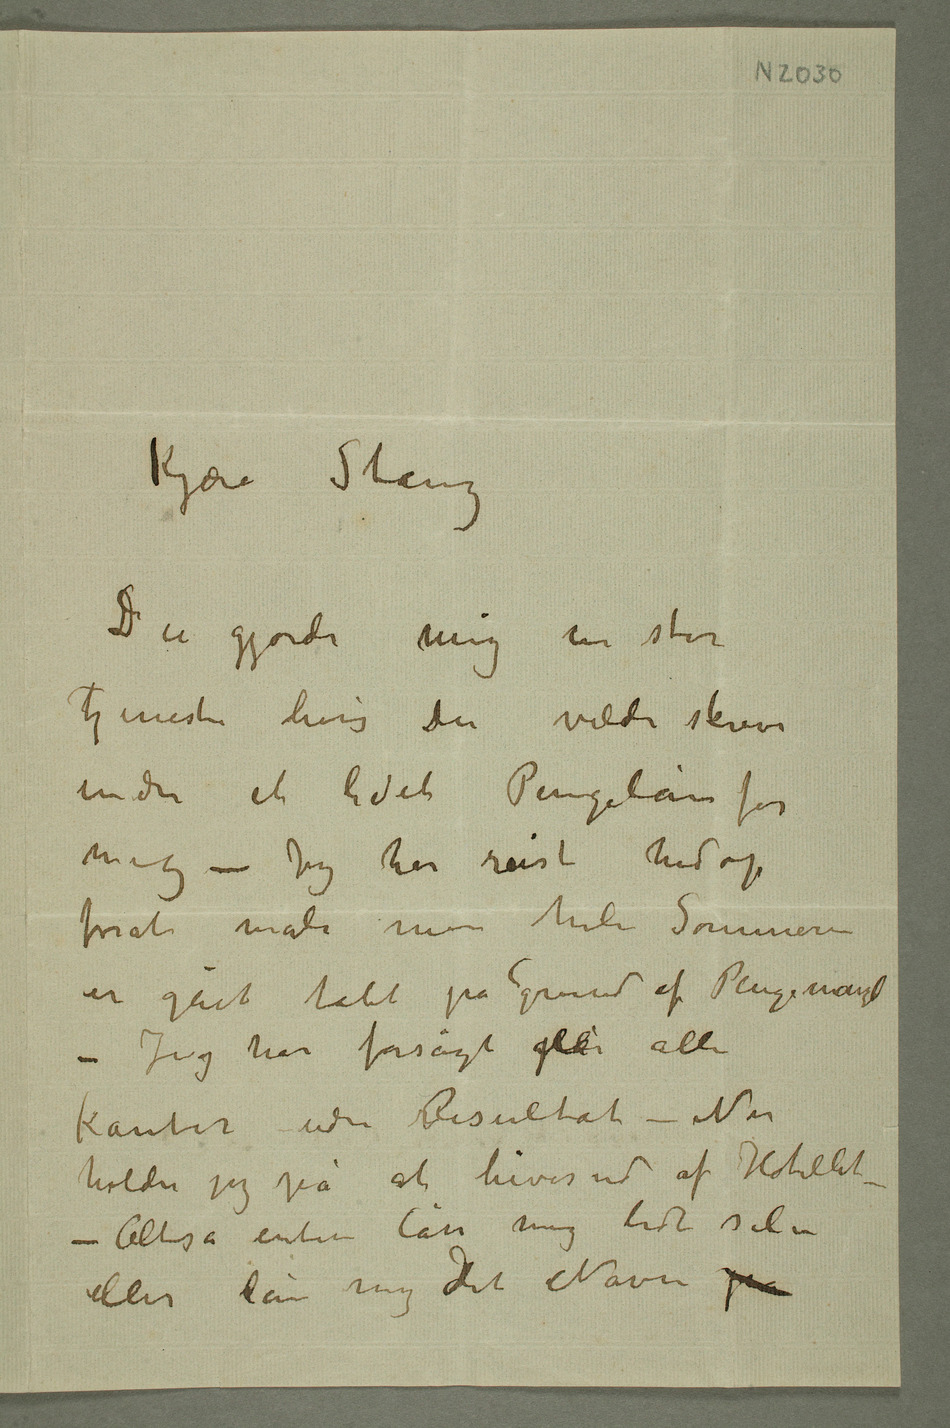 N 2030
Kjære Stang
Du gjorde mig en stor
tjeneste hvis du vilde skrive
under et lidet Pengelån for
mig – Jeg har reist herop
forat male men hele Sommeren
er gået tabt på Grund af Pengemangel
– Jeg har forsøgt alle
Kanter uden Resultat – Nu
holder jeg på at hives ud af Hotellet –
– Altså enten lån mig lidt selv
eller lån mig dit Navn på